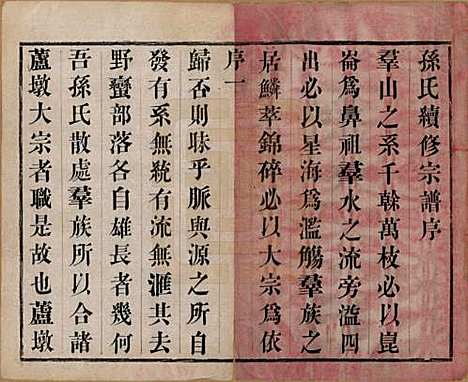 孫氏續修宗譜序
羣山之系千榦萬枝必以崑
崙爲鼻祖羣水之流旁溢四
出必以星海爲濫觴羣族之
居鱗萃錦碎必以大宗爲依
序一
歸否則昧乎脈與源之所自
發有系無統有流無滙其去
野蠻部落各自雄長者幾何
吾孫氏散處羣族所以合諸
蘆墩大宗者職是故也蘆墩